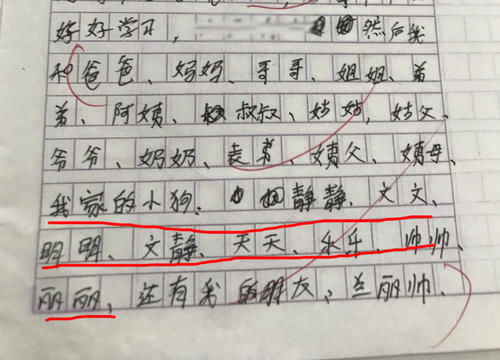 好好学习，然后我
和爸爸、妈妈、哥哥、姐姐、弟
弟、阿姨、叔叔、姑姑，姑父、
爷爷、奶奶、表弟、姨父、姨母、
我家的小狗：静静、文文、
明明、文静、天天、乐乐、帅帅、
丽丽、还有我的朋友、兰丽帅、